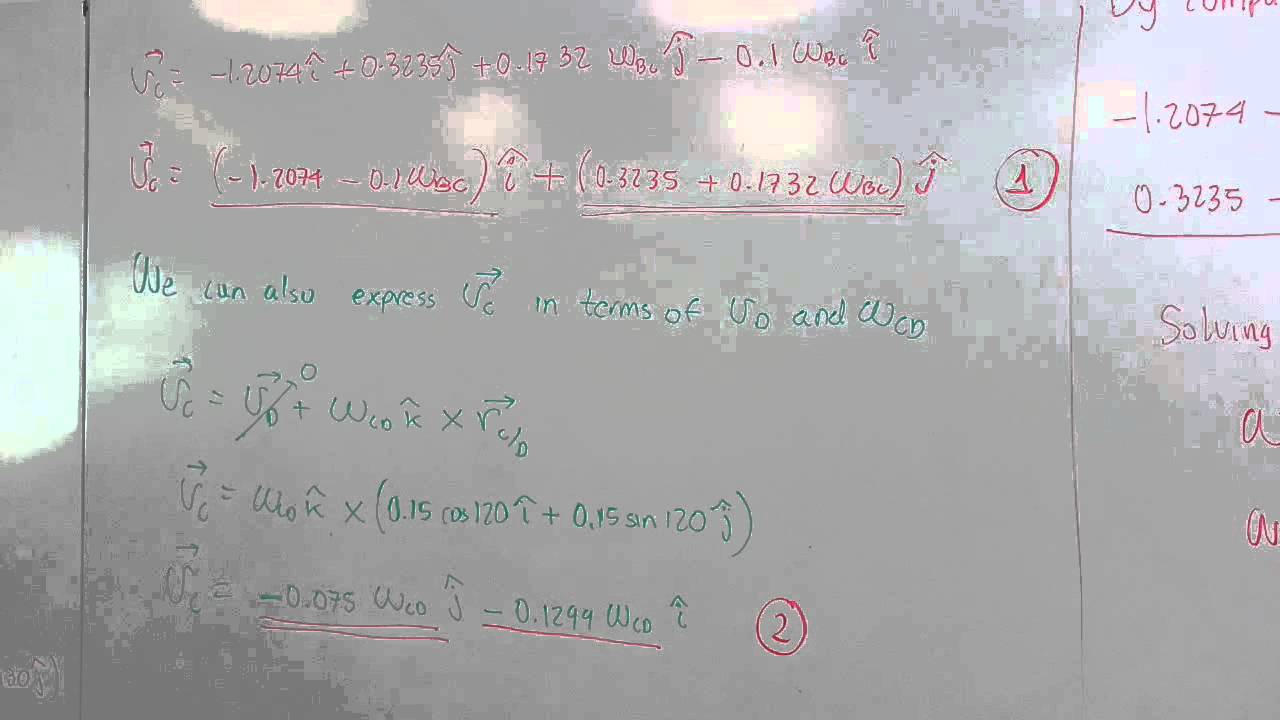 v⃗_C = -1.2074 î + 0.3235 ĵ + 0.1732 ω_BC ĵ - 0.1 ω_BC î
v⃗_C = (-1.2074 - 0.1 ω_BC) î + (0.3235 + 0.1732 ω_BC) ĵ ①
We can also express v⃗_C in terms of v_D and ω_CD
v⃗_C = v⃗_D 0 + ω_CD k̂ × r⃗_C/D
v⃗_C = ω_CD k̂ × (0.15 cos 120 î + 0.15 sin 120 ĵ)
v⃗_C = -0.075 ω_CD ĵ - 0.1299 ω_CD î ②
30 ĵ)
By
-1.2074 -
0.3235 -
Solving